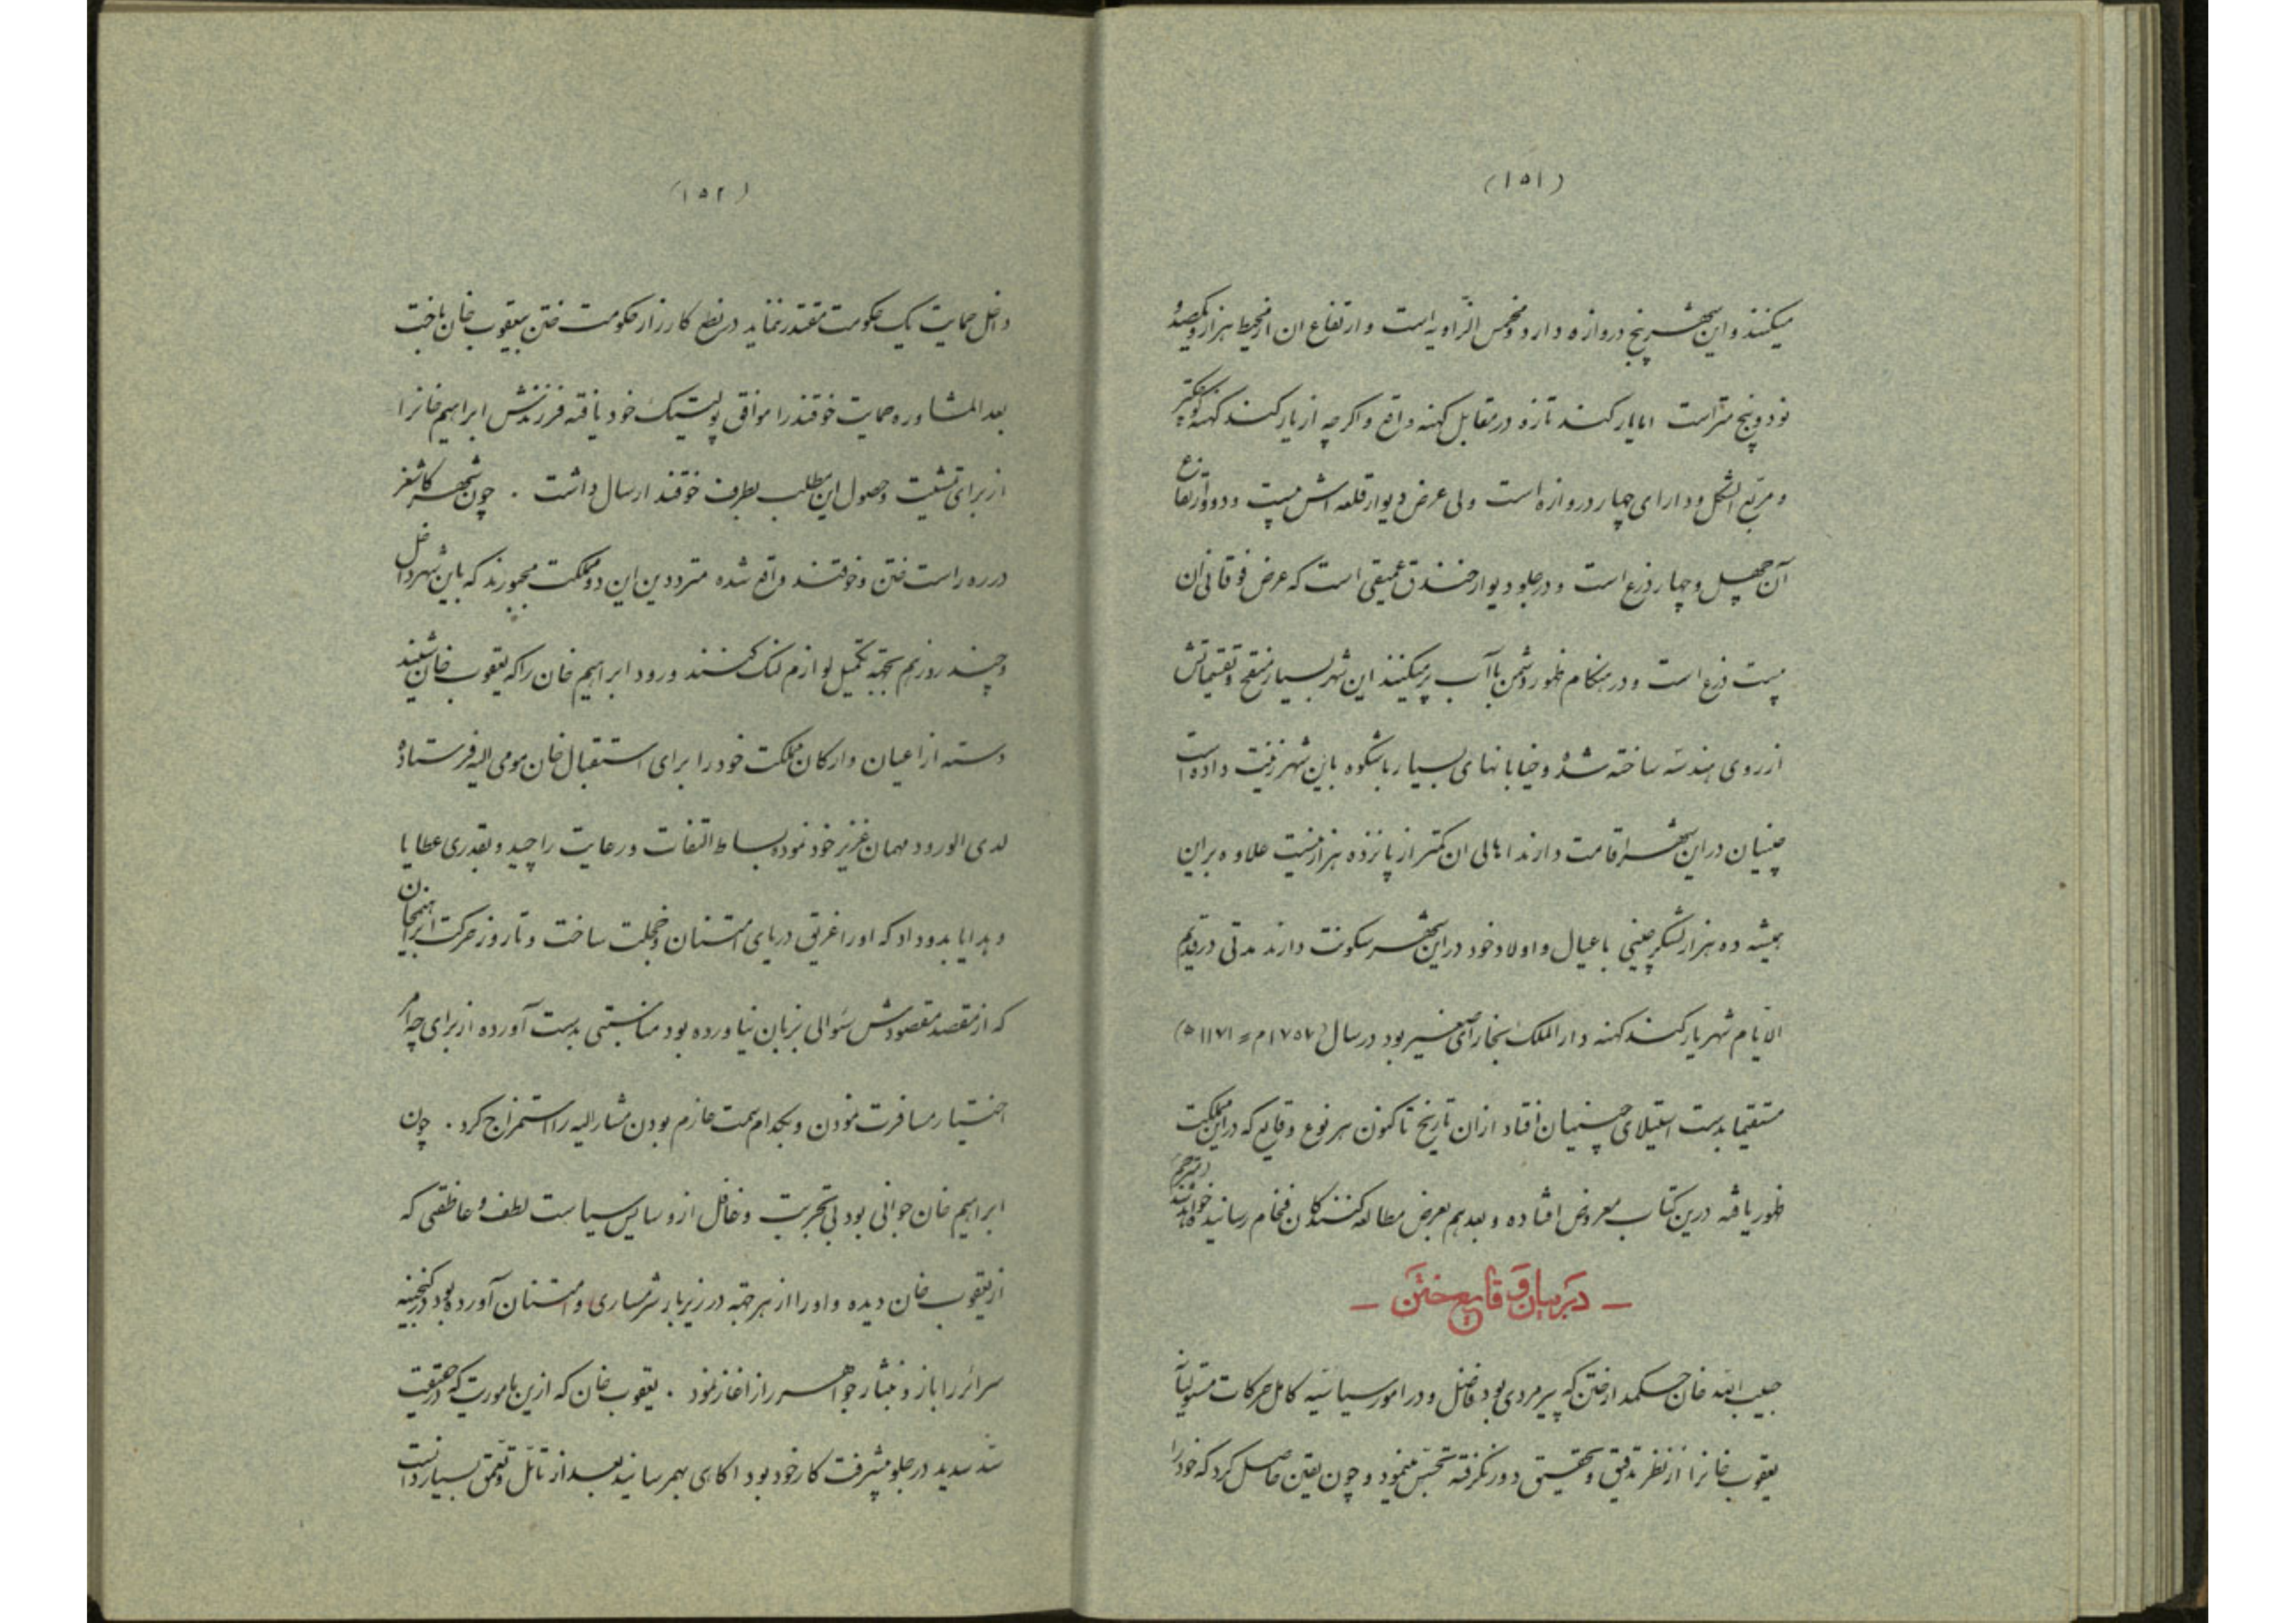 (۱۵۱)
میکنند و این شهر پنج دروازه دارد و مخمس الزاویه است و ارتفاع ان از محیط هزار و یکصد و
نود و پنج متراست اما یارکند تازه در مقابل کهنه واقع و اکرچه از یارکند کهنه کوچکتر
و مربع الشکل و دارای چهار دروازه است ولی عرض دیوار قلعه اش بیست و دو و ارتفاع
آن چهل و چهار ذرع است و در جلو دیوار خندق عمیقی است که عرض فوقانی ان
بیست ذرع است و در هنکام ظهور دشمن با آب پر میکنند این شهر بسیار منقح و تقسیماتش
از روی هندسه ساخته شده و خیابانهای بسیار باشکوه باین شهر زینت داده است
چنییان در این شهر اقامت دارند اهالی ان کمتر از پانزده هزار نیست علاوه بر این
همیشه ده هزار لشکر چینی با عیال و اولاد خود در این شهر سکونت دارند مدتی در قدیم
الایام شهر یارکند کهنه دار الملک بخارای صغیر بود در سال (۱۷۵۷م = ۱۱۷۱ ه)
مستقیما بدست استیلای چینیان افتاد از ان تاریخ تاکنون هر نوع وقایع که در این مملکت
ظهور یافته درین کتاب معروض افتاده و بعد هم بعرض مطالعه کنندکان فخام رسانید خواهد شد
— در بیان وقایع ختن —
حبیب الله خان حکمدار ختن که پیر مردی بود فاضل و در امور سیاسیه کامل حرکات
یعقوب خانرا از نظر تدقیق و تحقیق دور نکرفته تجسس مینمود و چون یقین حاصل کرد که خود را
(۱۵۲)
داخل حمایت یک حکومت مقتدر ننماید در نطع کارزار حکومت ختن بیعقوب خان باخت
بعد المشاوره حمایت خوقند را موافق پولیتیک خود یافته فرزندش ابراهیم خانرا
از برای تمشیت و حصول این مطلب بطرف خوقند ارسال داشت . چون شهر کاشغر
در ره راست ختن و خوقند واقع شده مترددین این دو مملکت مجبورند که باین شهر داخل
و چند روز هم بجهة تکمیل لوازم لنک کنند ورود ابراهیم خان را که یعقوب خان شنید
دسته از اعیان و ارکان مملکت خود را برای استقبال خان مومی الیه فرستاده
لدی الورود مهمان عزیز خود نموده بساط التفات و رعایت را چید و بقدری عطایا
و هدایا بدو داد که او را غریق دریای امتنان و خجلت ساخت و تا روز حرکت ابراهیمخان
که از مقصد مقصودش سؤالی بزبان نیاورده بود مناسبتی بدست آورده از برای چه امر
اختیار مسافرت نمودن و بکدام سمت عازم بودن مشار الیه را استمزاج کرد . چون
ابراهیم خان جوانی بود بی تجربت و غافل از وسایس سیاست لطف و عاطفتی که
از یعقوب خان دیده و او را از هر جهة در زیر بار شرمساری و امتنان آورده بود در کنجینه
سرائر را باز و بنثار جواهر راز اغاز نمود . یعقوب خان که ازین ماموریت که در حقیقت
سد سدید در جلو پیشرفت کار خود بود اکاهی بهمرسانید بعد از تامل و تعمق بسیار دانست